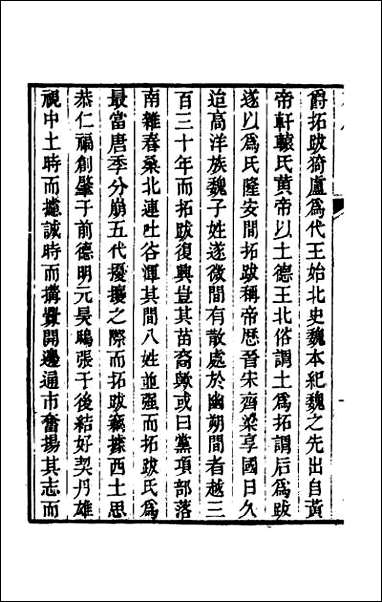 爵拓跋猗盧爲代王始北史魏本紀魏之先出自黃
帝軒轅氏黃帝以土德王北俗謂土爲拓謂后爲跋
遂以爲氏隆安間拓跋稱帝歷晉宋齊梁享國日久
迨高洋族魏子姓遂微間有散處於幽朔間者越三
百三十年而拓跋復興豈其苗裔歟或曰黨項部落
南雜春桑北連吐谷渾其間八姓並强而拓跋氏爲
最當唐季分崩五代擾攘之際而拓跋竊據西土思
恭仁福創肇于前德明元昊鴟張于後結好契丹雄
視中土時而攄誠時而搆釁開邊通市奮揚其志而